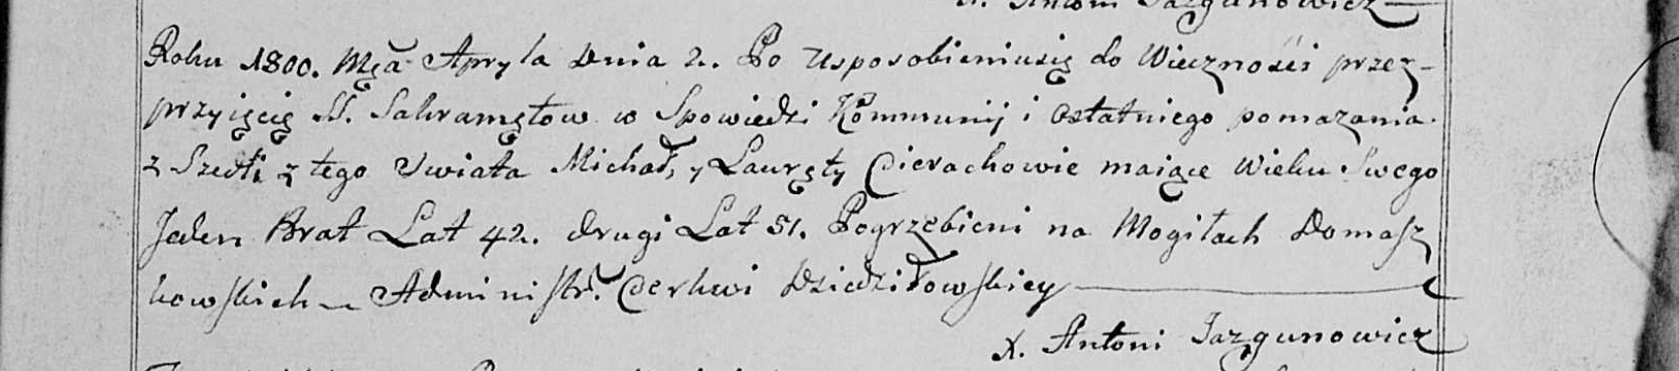 X. Antoni Jazgunowicz
Roku 1800. Mcą Apryla Dnia 2. Po Usposobieniusię do Wiecznośći przez
przyięcię SS. Sakramętow w Spowiedzi Kommunij i Ostatniego pomazania.
z Szedłi z tego Swiata Michał, y Lauręty Cierachowie maiące Wieku Swego
Jeden Brat Lat 42. drugi Lat 51. Pogrzebieni na Mogiłach Domasz
kowskich Administr. Cerkwi Dziedziłowskiey
X. Antoni Jazgunowicz